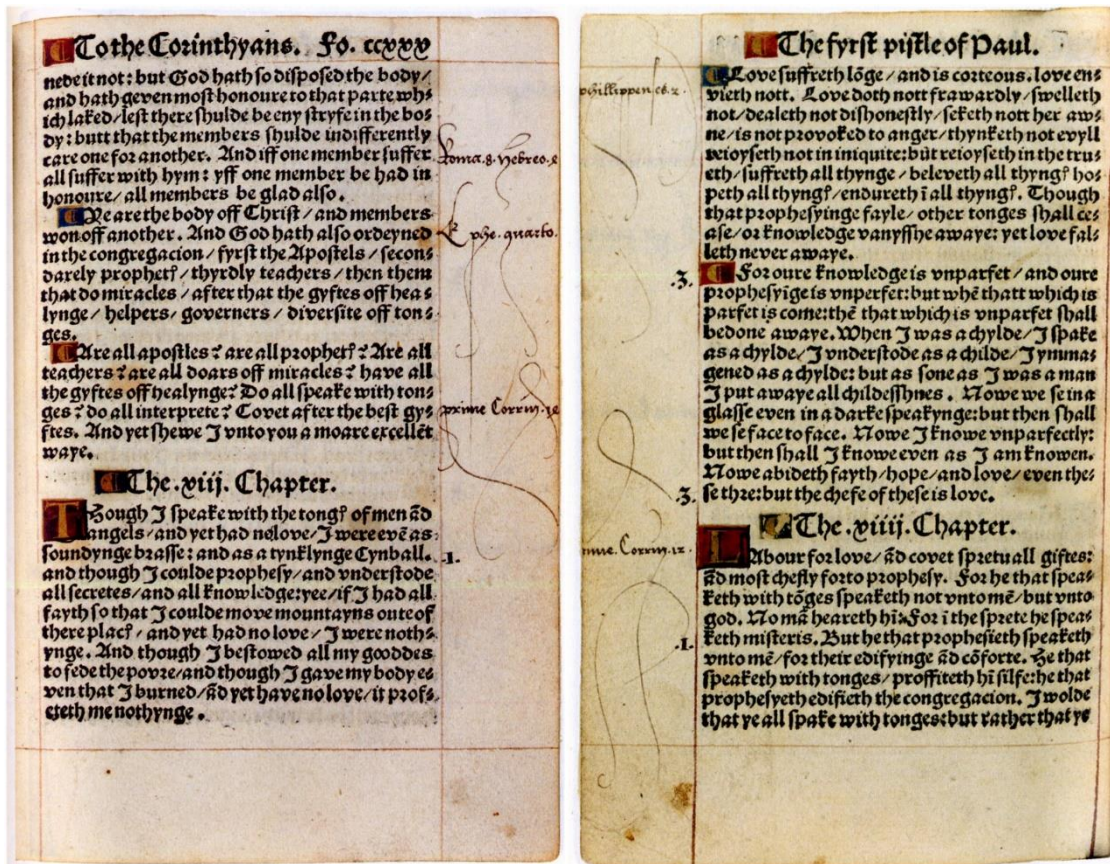 To the Corinthyans. Fo. ccxxx
nede it not: but God hath so disposed the body/
and hath geven most honoure to that parte wh⸗
ich laked/ lest there shulde be eny stryfe in the bo⸗
dy: butt that the members shulde indifferently
care one for another. And iff one member suffer
all suffer with hym: yff one member be had in
honoure/ all members be glad also.
Ye are the body off Christ/ and members
won off another. And God hath also ordeyned
in the congregacion/ fyrst the Apostels/ secon⸗
darely prophetꝭ/ thyrdly teachers/ then them
that do miracles/ after that the gyftes off hea⸗
lynge/ helpers/ governers/ diversite off ton⸗
ges.
Are all apostles? are all prophetꝭ? Are all
teachers? are all doars off miracles? have all
the gyftes off healynge? Do all speake with ton⸗
ges? do all interprete? Covet after the best gy⸗
ftes. And yet shewe I vnto you a moare excellēt
waye.
The .xiij. Chapter.
Though I speake with the tongꝭ of men ād
angels/ and yet had no love/ I were evē as
soundynge brasse: and as a tynklynge Cynball.
and though I coulde prophesy/ and vnderstode
all secretes/ and all knowledge: yee/ if I had all
fayth so that I coulde move mountayns oute of
there placꝭ/ and yet had no love/ I were noth⸗
ynge. And though I bestowed all my gooddes
to fede the povre/ and though I gave my body e⸗
ven that I burned/ ād yet have no love/ it prof⸗
eteth me nothynge.
Roma. 8. hebreo.
Ephe. quarto.
prime Corrin. 12
.1.
The fyrst pistle of Paul.
Love suffreth lōge/ and is corteous. love en⸗
vieth nott. Love doth nott frawardly/ swelleth
not/ dealeth not dishonestly/ seketh nott her aw⸗
ne/ is not provoked to anger/ thynketh not evyll
reioyseth not in iniquite: but reioyseth in the tru⸗
eth/ suffreth all thynge/ beleveth all thyngꝭ ho⸗
peth all thyngꝭ/ endureth ī all thyngꝭ. Though
that prophesyinge fayle/ other tonges shall ce⸗
ase/ or knowledge vanysshe awaye: yet love fal⸗
leth never awaye.
For oure knowledge is vnparfet/ and oure
prophesyīge is vnperfet: but whē thatt which is
parfet is come: thē that which is vnparfet shall
be done awaye. When I was a chylde/ I spake
as a chylde/ I vnderstode as a childe/ I ymma⸗
gened as a chylde: but as sone as I was a man
I put awaye all childesshnes. Nowe we se in a
glasse even in a darke speakynge: but then shall
we se face to face. Nowe I knowe vnparfectly:
but then shall I knowe even as I am knowen.
Nowe abideth fayth/ hope/ and love/ even the⸗
se thre: but the chefe of these is love.
The .xiiij. Chapter.
LAbour for love/ ād covet spretuall giftes:
ād most chefly forto prophesy. For he that spea⸗
keth with tōges speaketh not vnto mē/ but vnto
god. No mā heareth hī: For ī the sprete he spea⸗
keth misteris. But he that prophesieth speaketh
vnto mē/ for their edifyinge ād cōforte. He that
speaketh with tonges/ proffiteth hī silfe: he that
prophesyeth edifieth the congregacion. I wolde
that ye all spake with tonges: but rather that ye
phillippen. ch. 2.
.3.
3.
Corrin. 12.
.1.